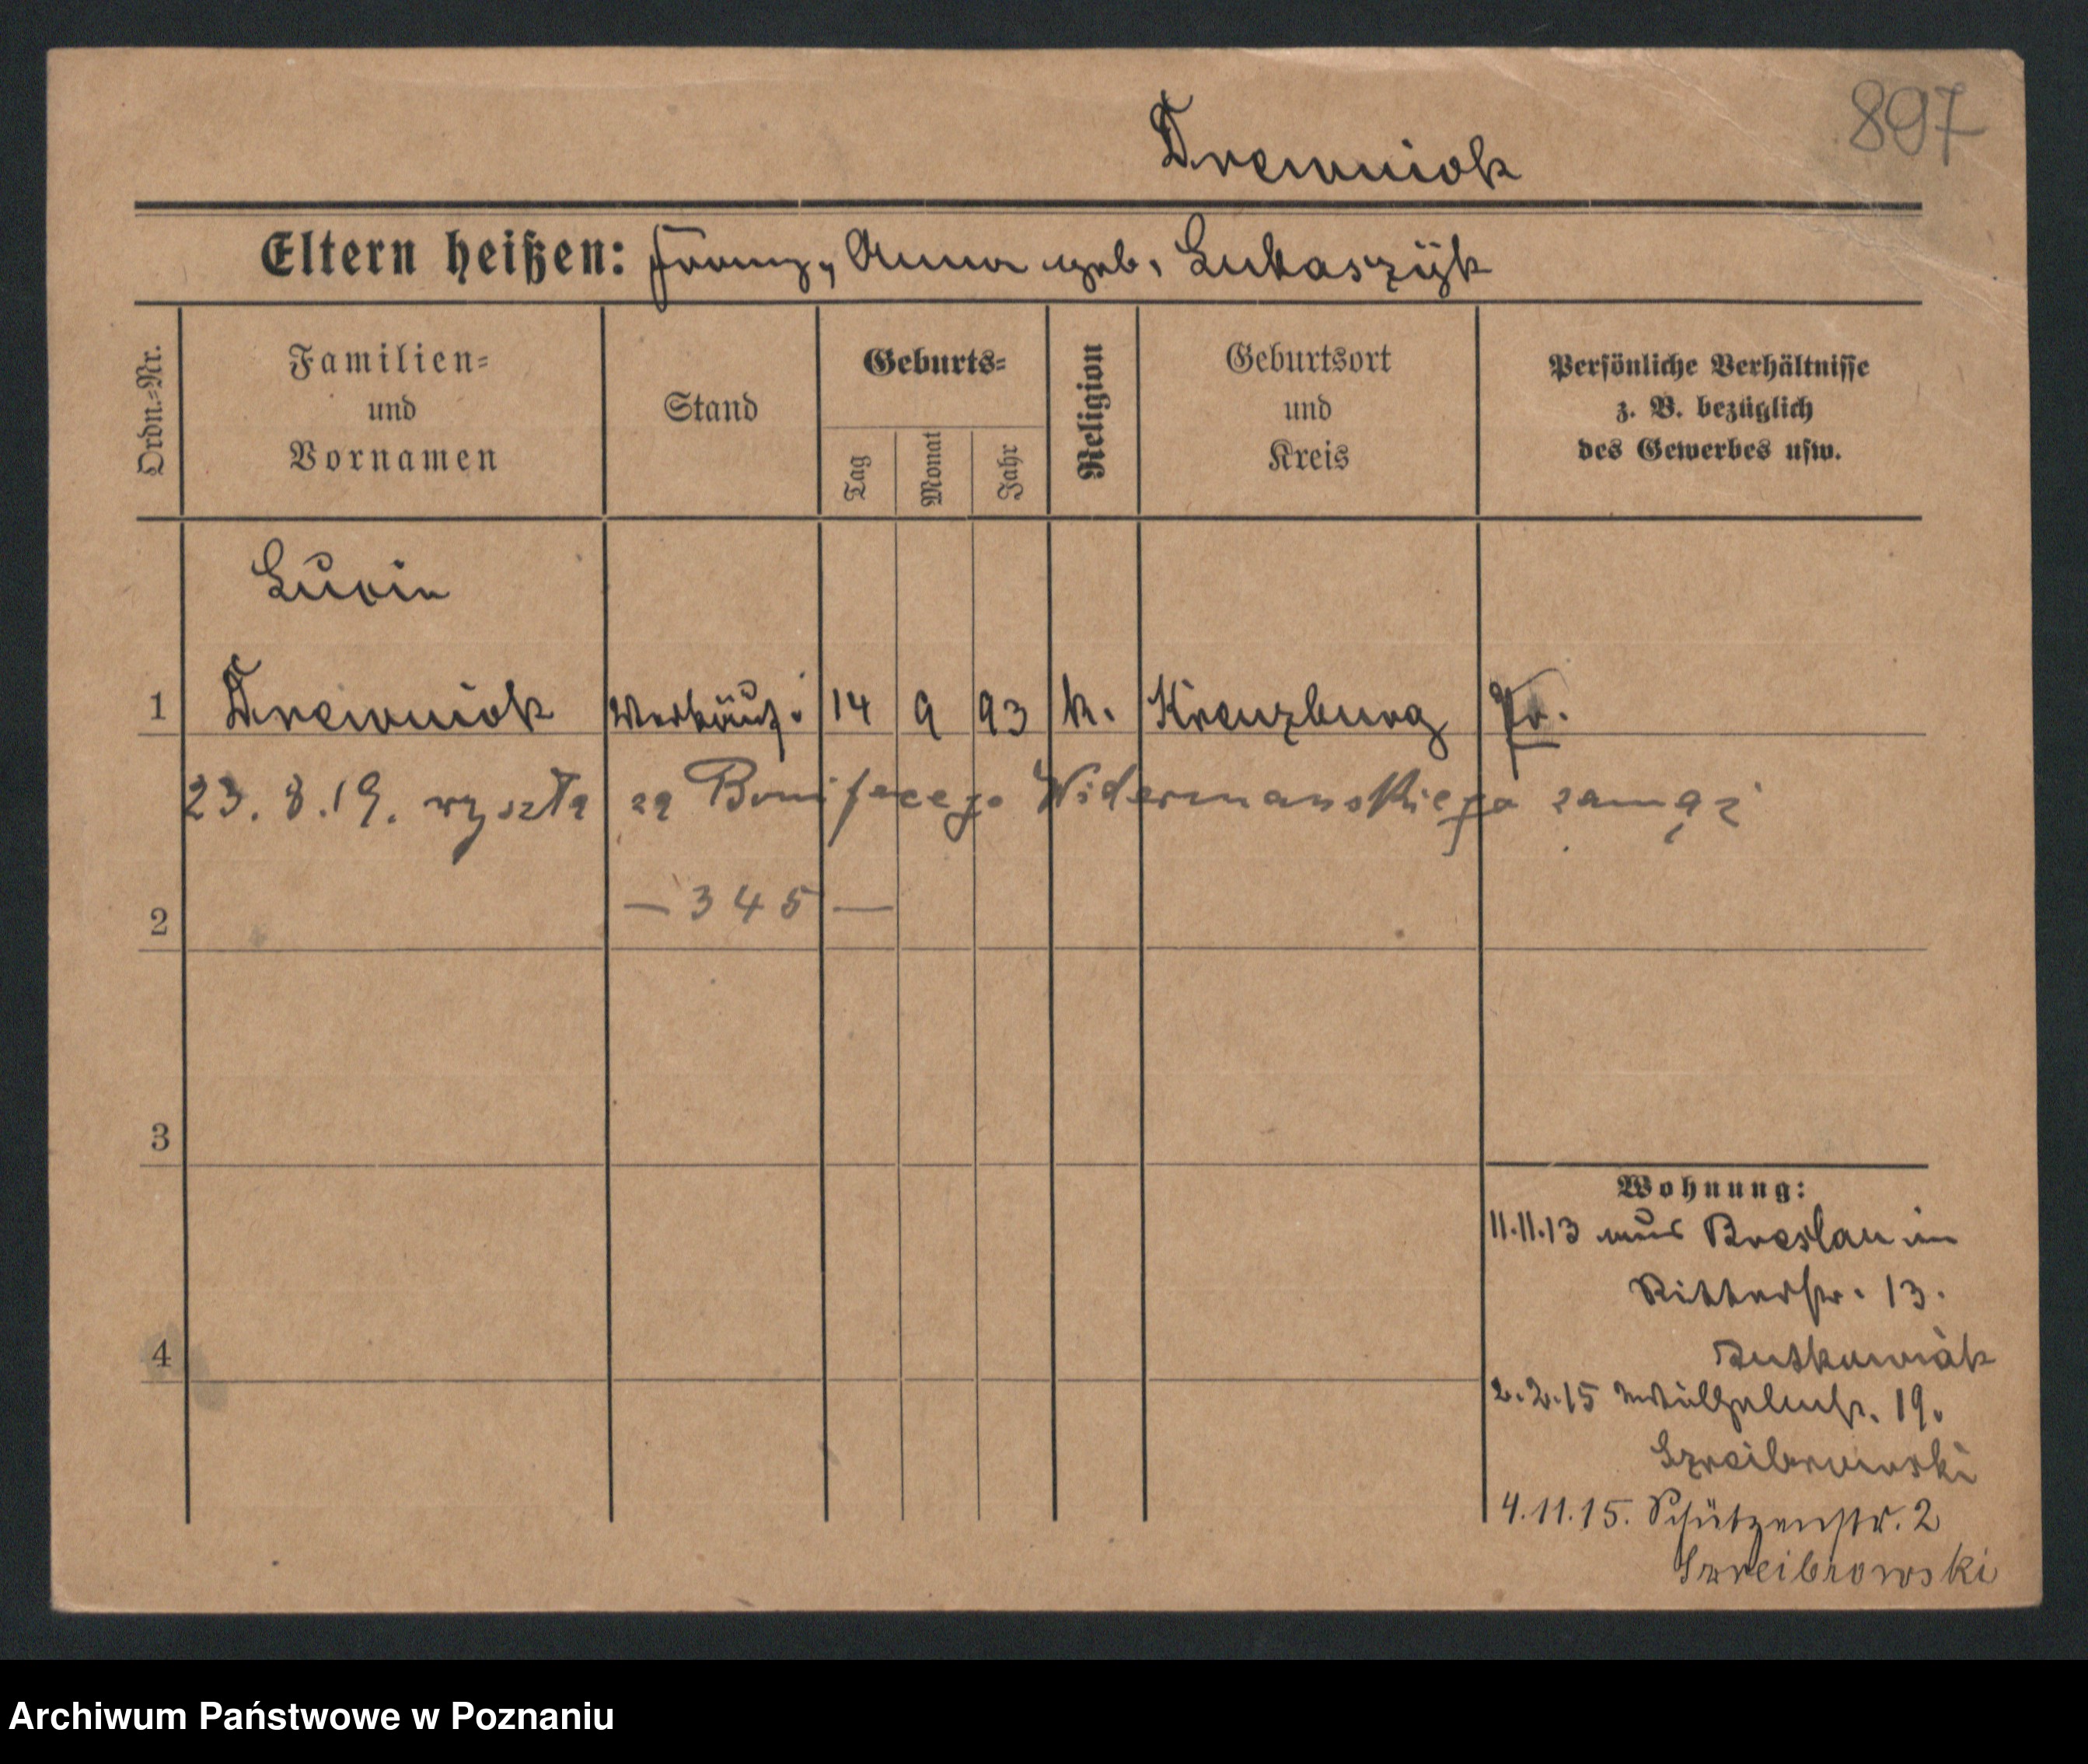 897
Drewniok
Eltern heißen: Franz, Anna geb. Lukaszÿk
Ordn.-Nr.
Familien-
und
Vornamen
Stand
Geburts-
Tag
Monat
Jahr
Religion
Geburtsort
und
Kreis
Persönliche Verhältnisse
z. B. bezüglich
des Gewerbes usw.
1 Drewniok Verkäuf. 14 9 93 k. Kreuzburg Pr.
23.8.19. wyszła za Bonifacego Widermanskiego zamąż
2 — 345 —
3
4
Wohnung:
11.11.13 aus Breslau in
Ritterstr. 13.
2.2.15 Wilhelmstr. 19.
Szreibrowski
4.11.15. Schützenstr. 2
Szreibrowski
Archiwum Państwowe w Poznaniu